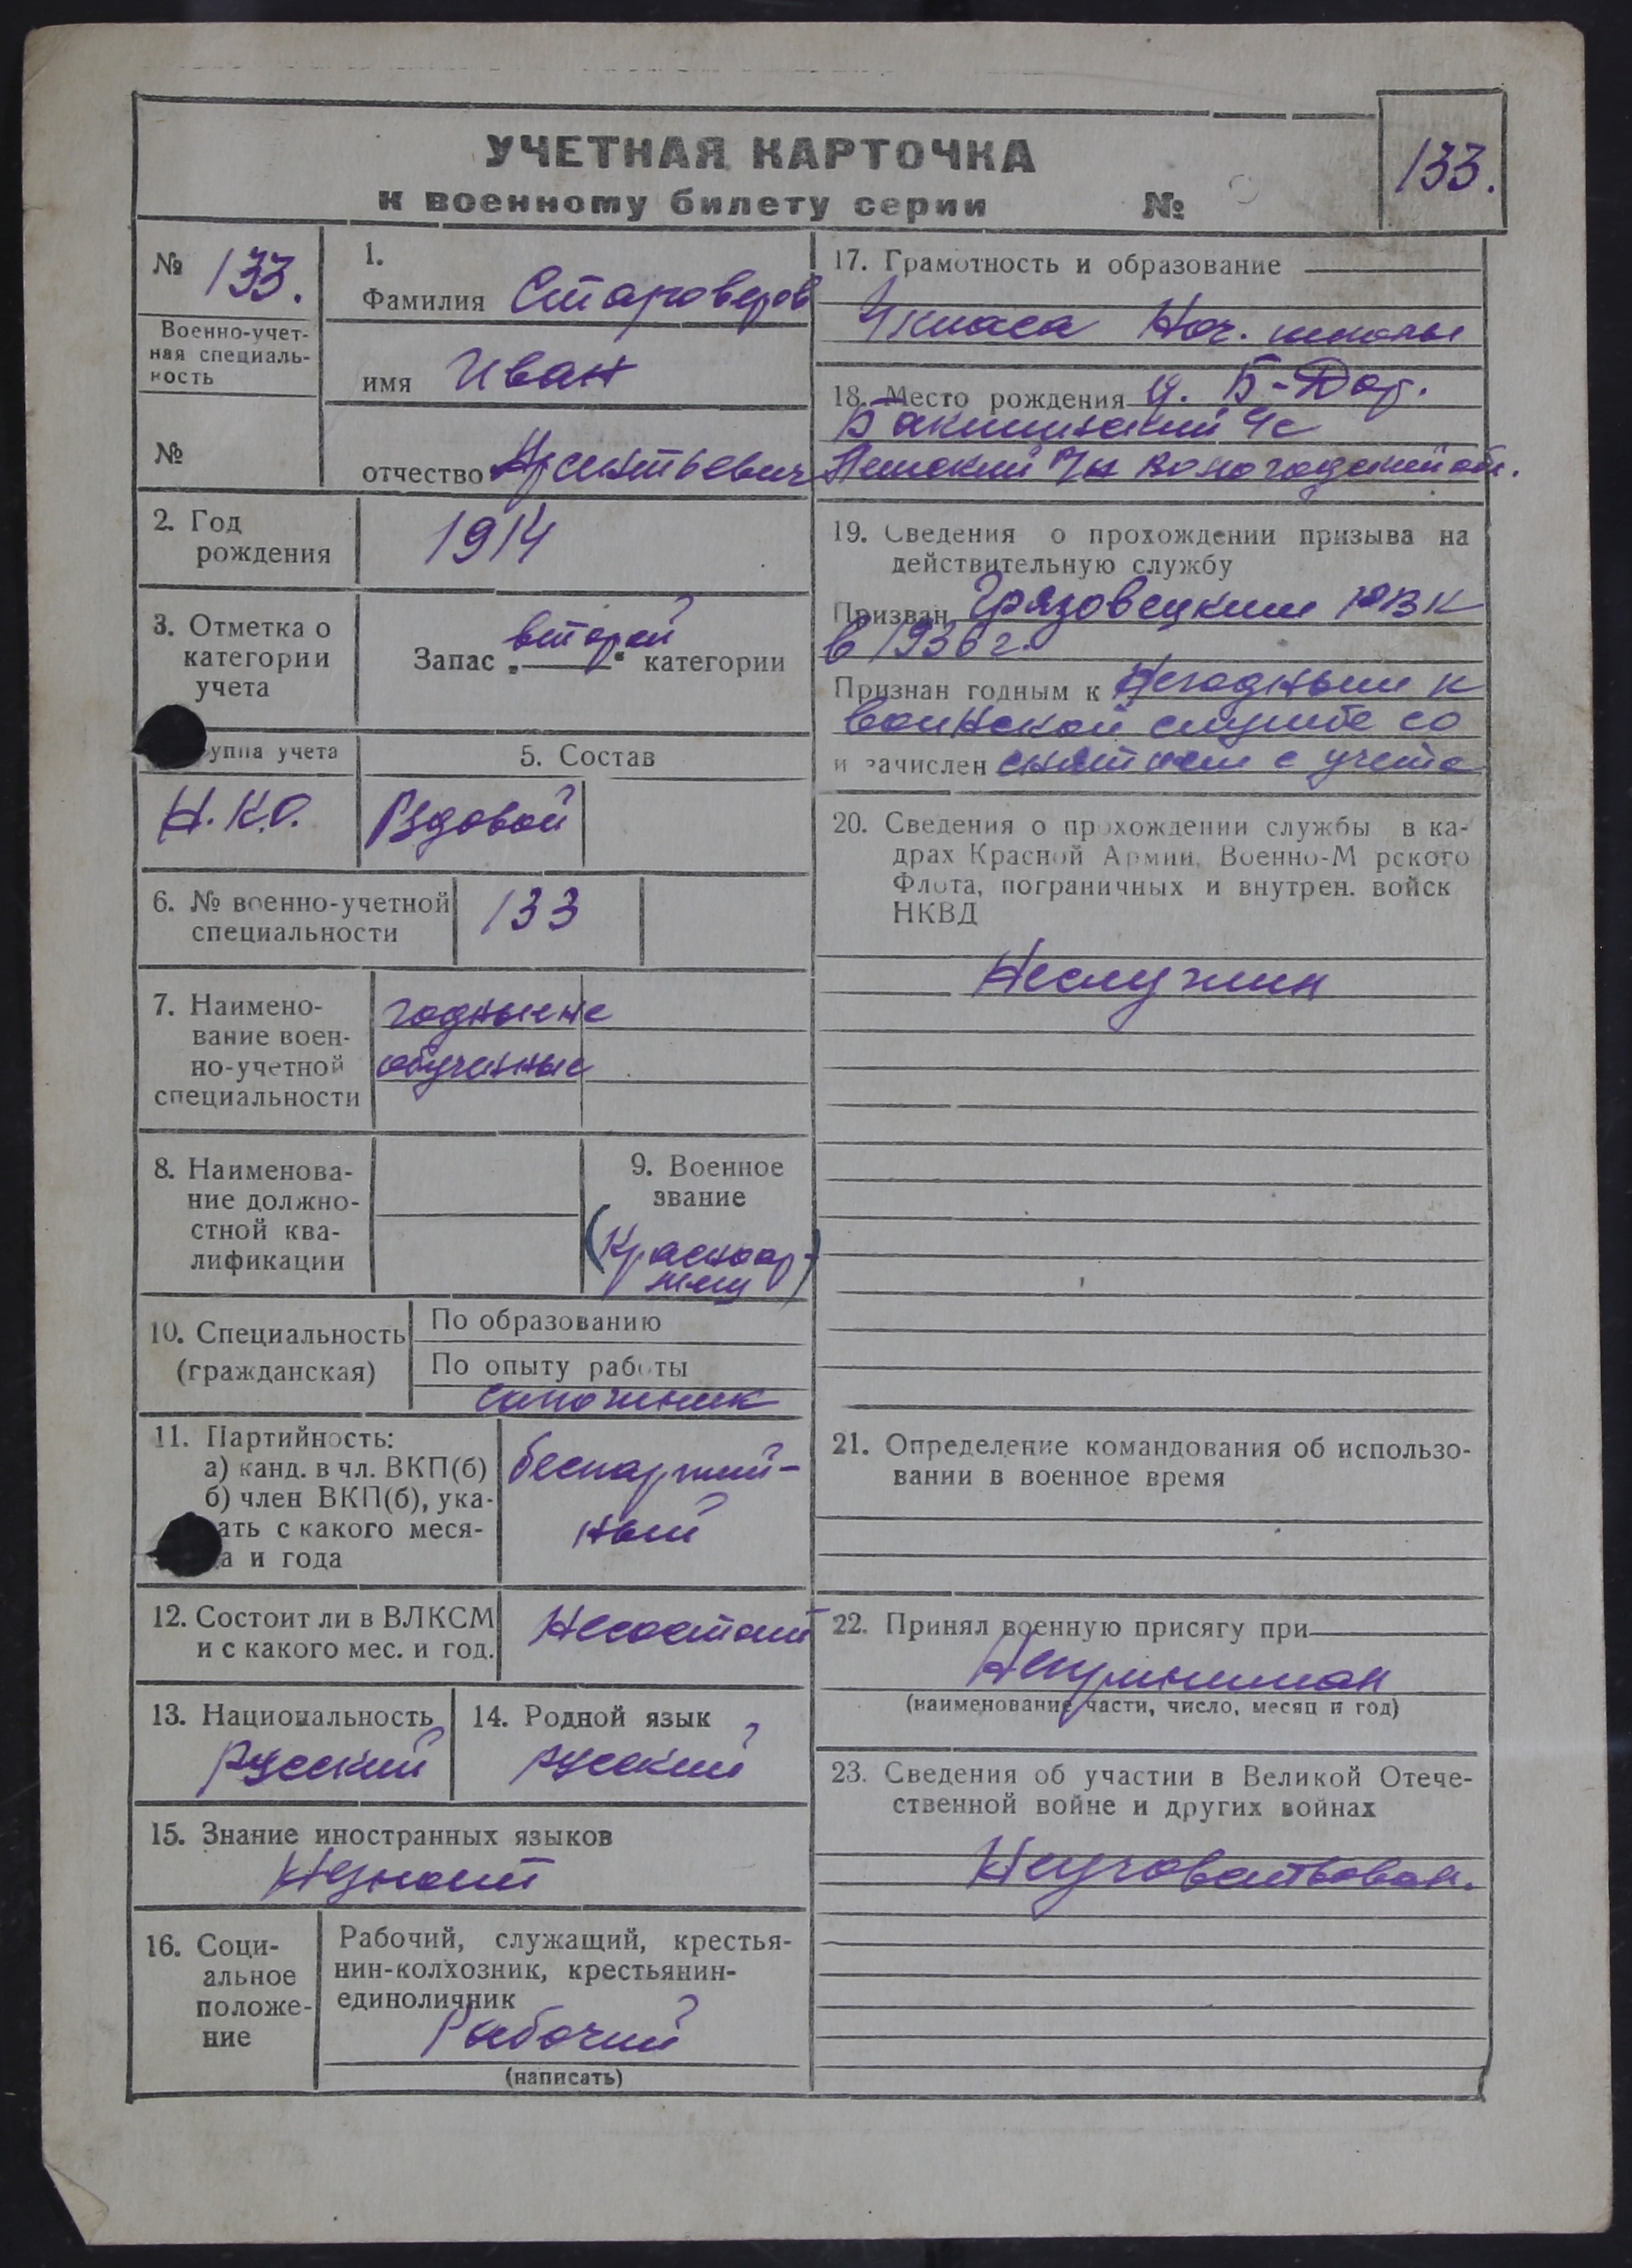 УЧЕТНАЯ КАРТОЧКА
к военному билету серии №
133.
№ 133.
Военно-учет-
ная специаль-
ность
№
1.
Фамилия Староверов
имя Иван
отчество Арсентьевич
2. Год
рождения
1914
3. Отметка о
категории
учета
Запас „второй“ категории
уппа учета
Н.К.О.
5. Состав
Рядовой
6. № военно-учетной
специальности
133
7. Наимено-
вание воен-
но-учетной
специальности
годные не
обученные
8. Наименова-
ние должно-
стной ква-
лификации
9. Военное
звание
(Красноар-
меец)
10. Специальность
(гражданская)
По образованию
По опыту работы
сапожник
11. Партийность:
а) канд. в чл. ВКП(б)
б) член ВКП(б), ука-
ать с какого меся-
а и года
беспартий-
ный
12. Состоит ли в ВЛКСМ
и с какого мес. и год.
Несостоит
13. Национальность
Русский
14. Родной язык
русский
15. Знание иностранных языков
Незнает
16. Соци-
альное
положе-
ние
Рабочий, служащий, крестья-
нин-колхозник, крестьянин-
единоличник
Рабочий
(написать)
17. Грамотность и образование
4 класса Нач. школы
18. Место рождения д. Б-Двор.
Бакшинский с/с
р/н Вологодской обл.
19. Сведения о прохождении призыва на
действительную службу
Призван Грязовецким РВК
в 1936 г.
Признан годным к Негодным к
воинской службе со
и зачислен снятием с учета
20. Сведения о прохождении службы в ка-
драх Красной Армии, Военно-М рского
Флота, пограничных и внутрен. войск
НКВД
Неслужил
21. Определение командования об использо-
вании в военное время
22. Принял военную присягу при
Непринимал
(наименование части, число, месяц и год)
23. Сведения об участии в Великой Отече-
ственной войне и других войнах
Неучаствовал.